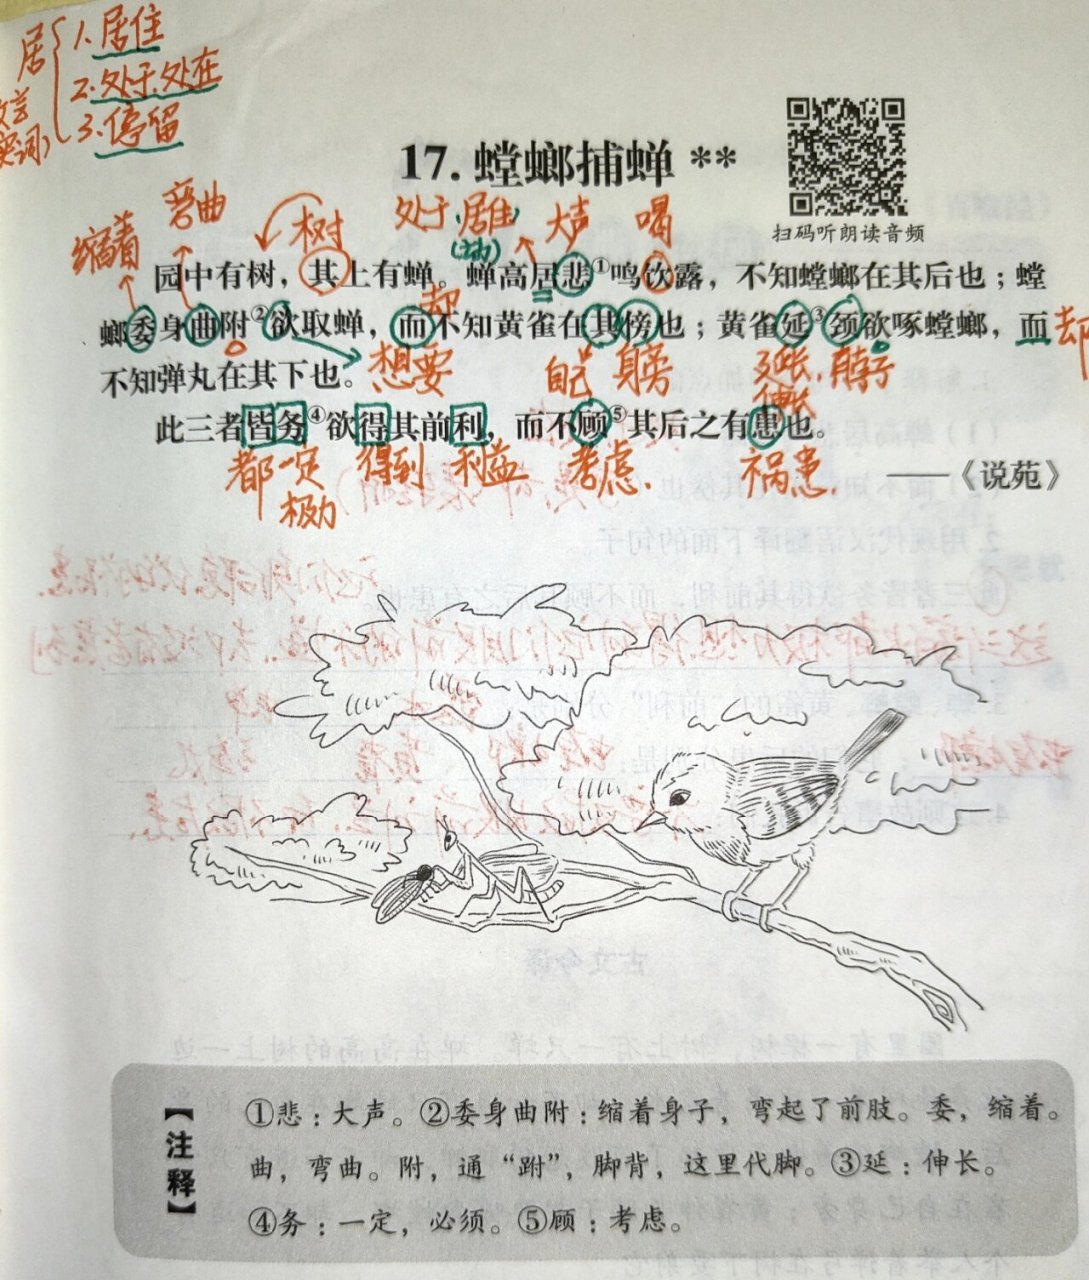 居
文言
实词
1.居住
2.处于、处在
3.停留
17.螳螂捕蝉 **
扫码听朗读音频
缩着 弯曲 树 处于 居住 大声 喝
园中有树，其上有蝉。蝉高居悲①鸣饮露，不知螳螂在其后也；螳
却
螂委身曲附②欲取蝉，而不知黄雀在其傍也；黄雀延③颈欲啄螳螂，而 却
想要 自己 身旁 延长 脖子
伸长
不知弹丸在其下也。
此三者皆务④欲得其前利，而不顾⑤其后之有患也。
都 一定 得到 利益 考虑. 祸患.
极力
——《说苑》
【注释】
①悲：大声。②委身曲附：缩着身子，弯起了前肢。委，缩着。
曲，弯曲。附，通“跗”，脚背，这里代脚。③延：伸长。
④务：一定，必须。⑤顾：考虑。